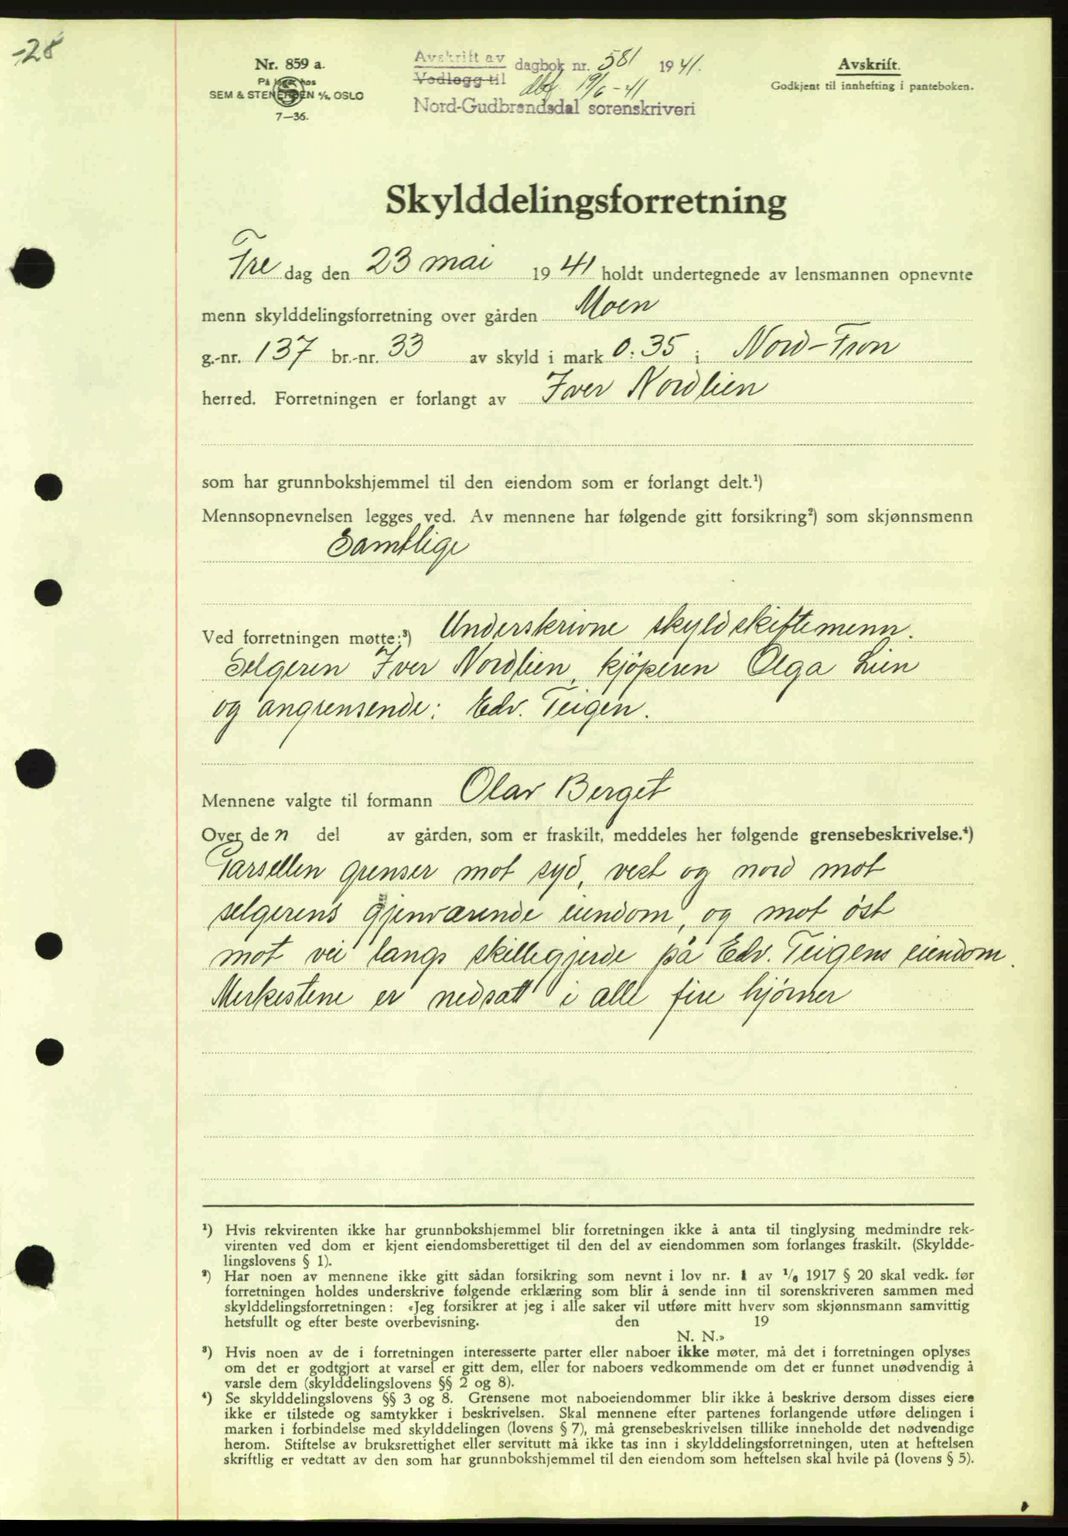 -28
Nr. 859 a.
På lager hos
SEM & STENERSEN A/S, OSLO
7—36.
Avskrift av
Vedlegg til dagbok nr. 581 1941.
dbf 19/6-41
Nord-Gudbrandsdal sorenskriveri
Avskrift.
Godkjent til innhefting i panteboken.
Skylddelingsforretning
Fre dag den 23 mai 1941 holdt undertegnede av lensmannen opnevnte
menn skylddelingsforretning over gården Moen
g.-nr. 137 br.-nr. 33 av skyld i mark 0.35 i Nord-Fron
herred. Forretningen er forlangt av Iver Nordlien
som har grunnbokshjemmel til den eiendom som er forlangt delt.¹)
Mennsopnevnelsen legges ved. Av mennene har følgende gitt forsikring²) som skjønnsmenn
Samtlige
Ved forretningen møtte:³) Underskrivne skyldskiftemenn.
Selgeren Iver Nordlien, kjöperen Olga Lien
og angrensende: Edv. Teigen.
Mennene valgte til formann Olav Berget
Over den del av gården, som er fraskilt, meddeles her følgende grensebeskrivelse.⁴)
Parsellen grenser mot syd, vest og nord mot
selgerens gjenværende eiendom, og mot öst
mot vei langs skillegjerde på Edv. Teigens eiendom.
Merkestene er nedsatt i alle fire hjörner
¹) Hvis rekvirenten ikke har grunnbokshjemmel blir forretningen ikke å anta til tinglysing medmindre rek-
virenten ved dom er kjent eiendomsberettiget til den del av eiendommen som forlanges fraskilt. (Skyldde-
lingslovens § 1).
²) Har noen av mennene ikke gitt sådan forsikring som nevnt i lov nr. 1 av ¹/₆ 1917 § 20 skal vedk. før
forretningen holdes underskrive følgende erklæring som blir å sende inn til sorenskriveren sammen med
skylddelingsforretningen: «Jeg forsikrer at jeg i alle saker vil utføre mitt hverv som skjønnsmann samvittig
hetsfullt og efter beste overbevisning. den 19
N. N.»
³) Hvis noen av de i forretningen interesserte parter eller naboer ikke møter, må det i forretningen oplyses
om det er godtgjort at varsel er gitt dem, eller for naboers vedkommende om det er funnet unødvendig å
varsle dem (skylddelingslovens §§ 2 og 8).
⁴) Se skylddelingslovens §§ 3 og 8. Grensene mot naboeiendommer blir ikke å beskrive dersom disses eiere
ikke er tilstede og samtykker i beskrivelsen. Skal mennene efter partenes forlangende utføre delingen i
marken i forbindelse med skylddelingen (lovens § 7), må grensebeskrivelsen tillike inneholde det nødvendige
herom. Stiftelse av bruksrettighet eller servitutt må ikke tas inn i skylddelingsforretningen, uten at heftelsen
skriftlig er vedtatt av den som har grunnbokshjemmel til den eiendom som heftelsen skal hvile på (lovens § 5).